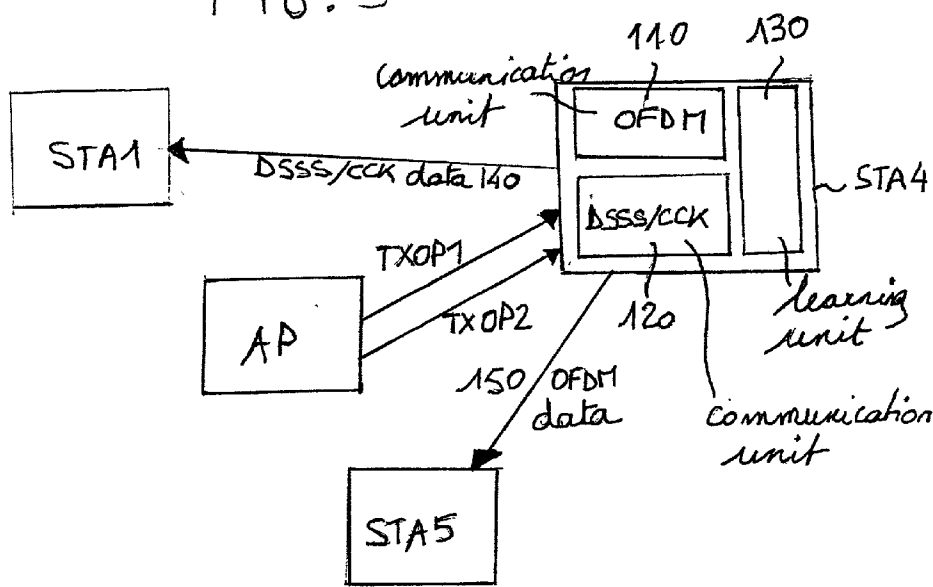 110
130
communication
unit
OFDM
STA1
DSSS/CCK data 140
STA4
DSSS/CCK
TXOP1
TXOP2
AP
120
learning
unit
150
OFDM
data
communication
unit
STA5